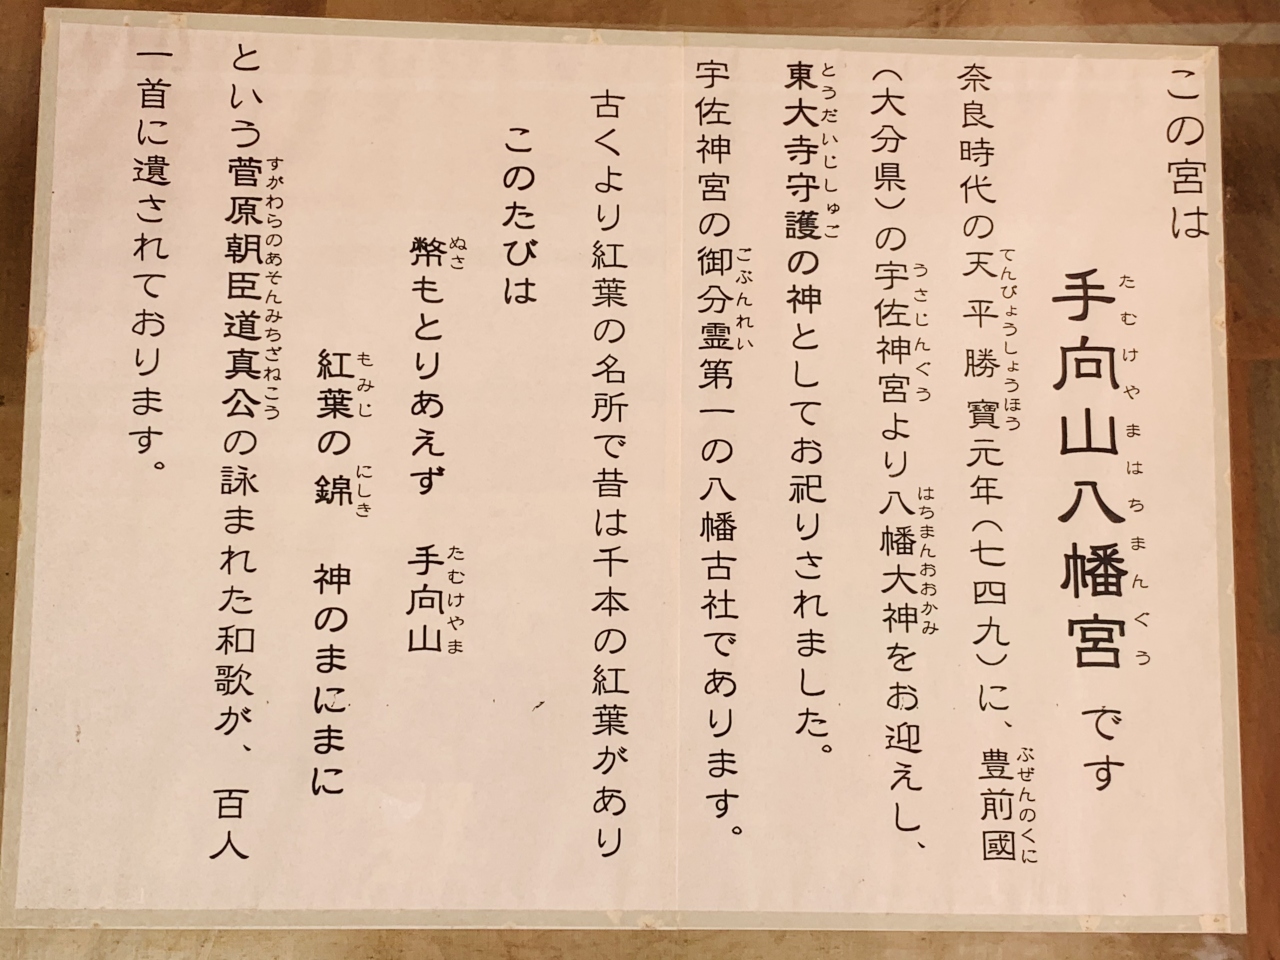 この宮は
手向山八幡宮です
奈良時代の天平勝寶元年(七四九)に、豊前國
(大分県)の宇佐神宮より八幡大神をお迎えし、
東大寺守護の神としてお祀りされました。
宇佐神宮の御分霊第一の八幡古社であります。
古くより紅葉の名所で昔は千本の紅葉があり
このたびは
幣もとりあえず 手向山
紅葉の錦 神のまにまに
という菅原朝臣道真公の詠まれた和歌が、百人
一首に遺されております。
たむけやまはちまんぐう
てんぴょうしょうほう
ぶぜんのくに
うさじんぐう
はちまんおおかみ
とうだいじしゅご
ごぶんれい
ぬさ
たむけやま
もみじ
にしき
すがわらのあそんみちざねこう